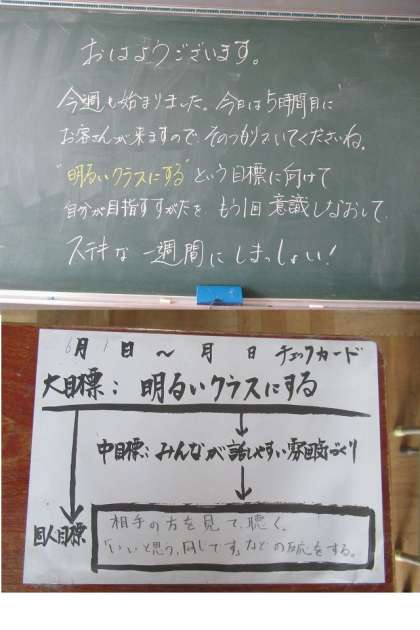 おはようございます。
今週も始まりました。今日は5時間目に
お客さんが来ますので、そのつもりでいてくださいね。
"明るいクラスにする"という目標に向けて
自分が目指すすがたを、もう1回意識しなおして、
ステキな一週間にしましょう!
6月1日〜月日 チェックカード
大目標：明るいクラスにする
中目標：みんなが話しやすい雰囲気づくり
個人目標
相手の方を見て、聴く。
「いいと思う、同じです」などの反応をする。